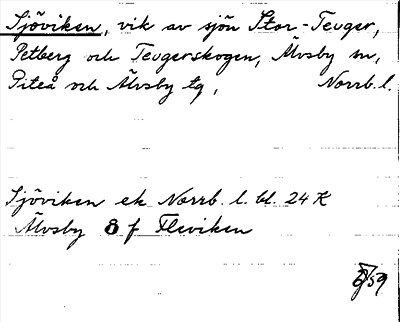 Sjöviken, vik av sjön Stor-Tevger,
Petberg och Tevgerskogen, Älvsby sn,
Piteå och Älvsby tg, Norrb. l.
Sjöviken ek Norrb. l. bl. 24 K
Älvsby 8 f Fleviken
/59